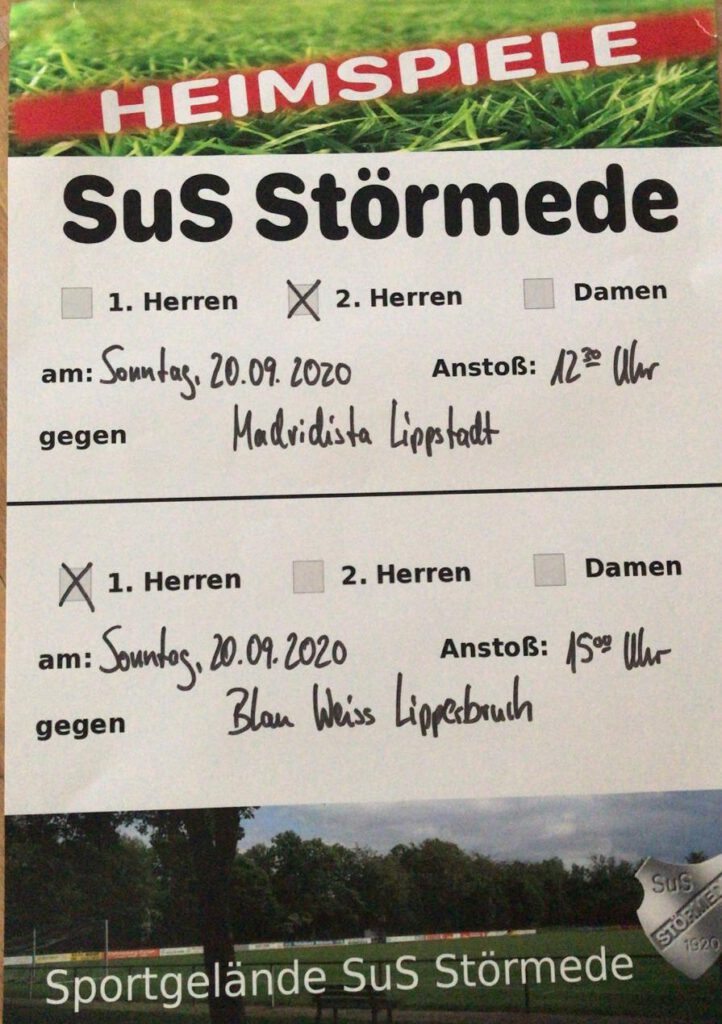 HEIMSPIELE
SuS Störmede
1. Herren 2. Herren Damen
am: Sonntag, 20.09.2020 Anstoß: 12³⁰ Uhr
gegen Madridista Lippstadt
1. Herren 2. Herren Damen
am: Sonntag, 20.09.2020 Anstoß: 15⁰⁰ Uhr
gegen Blau Weiss Lipperbruch
SuS
STÖRME
1920
Sportgelände SuS Störmede